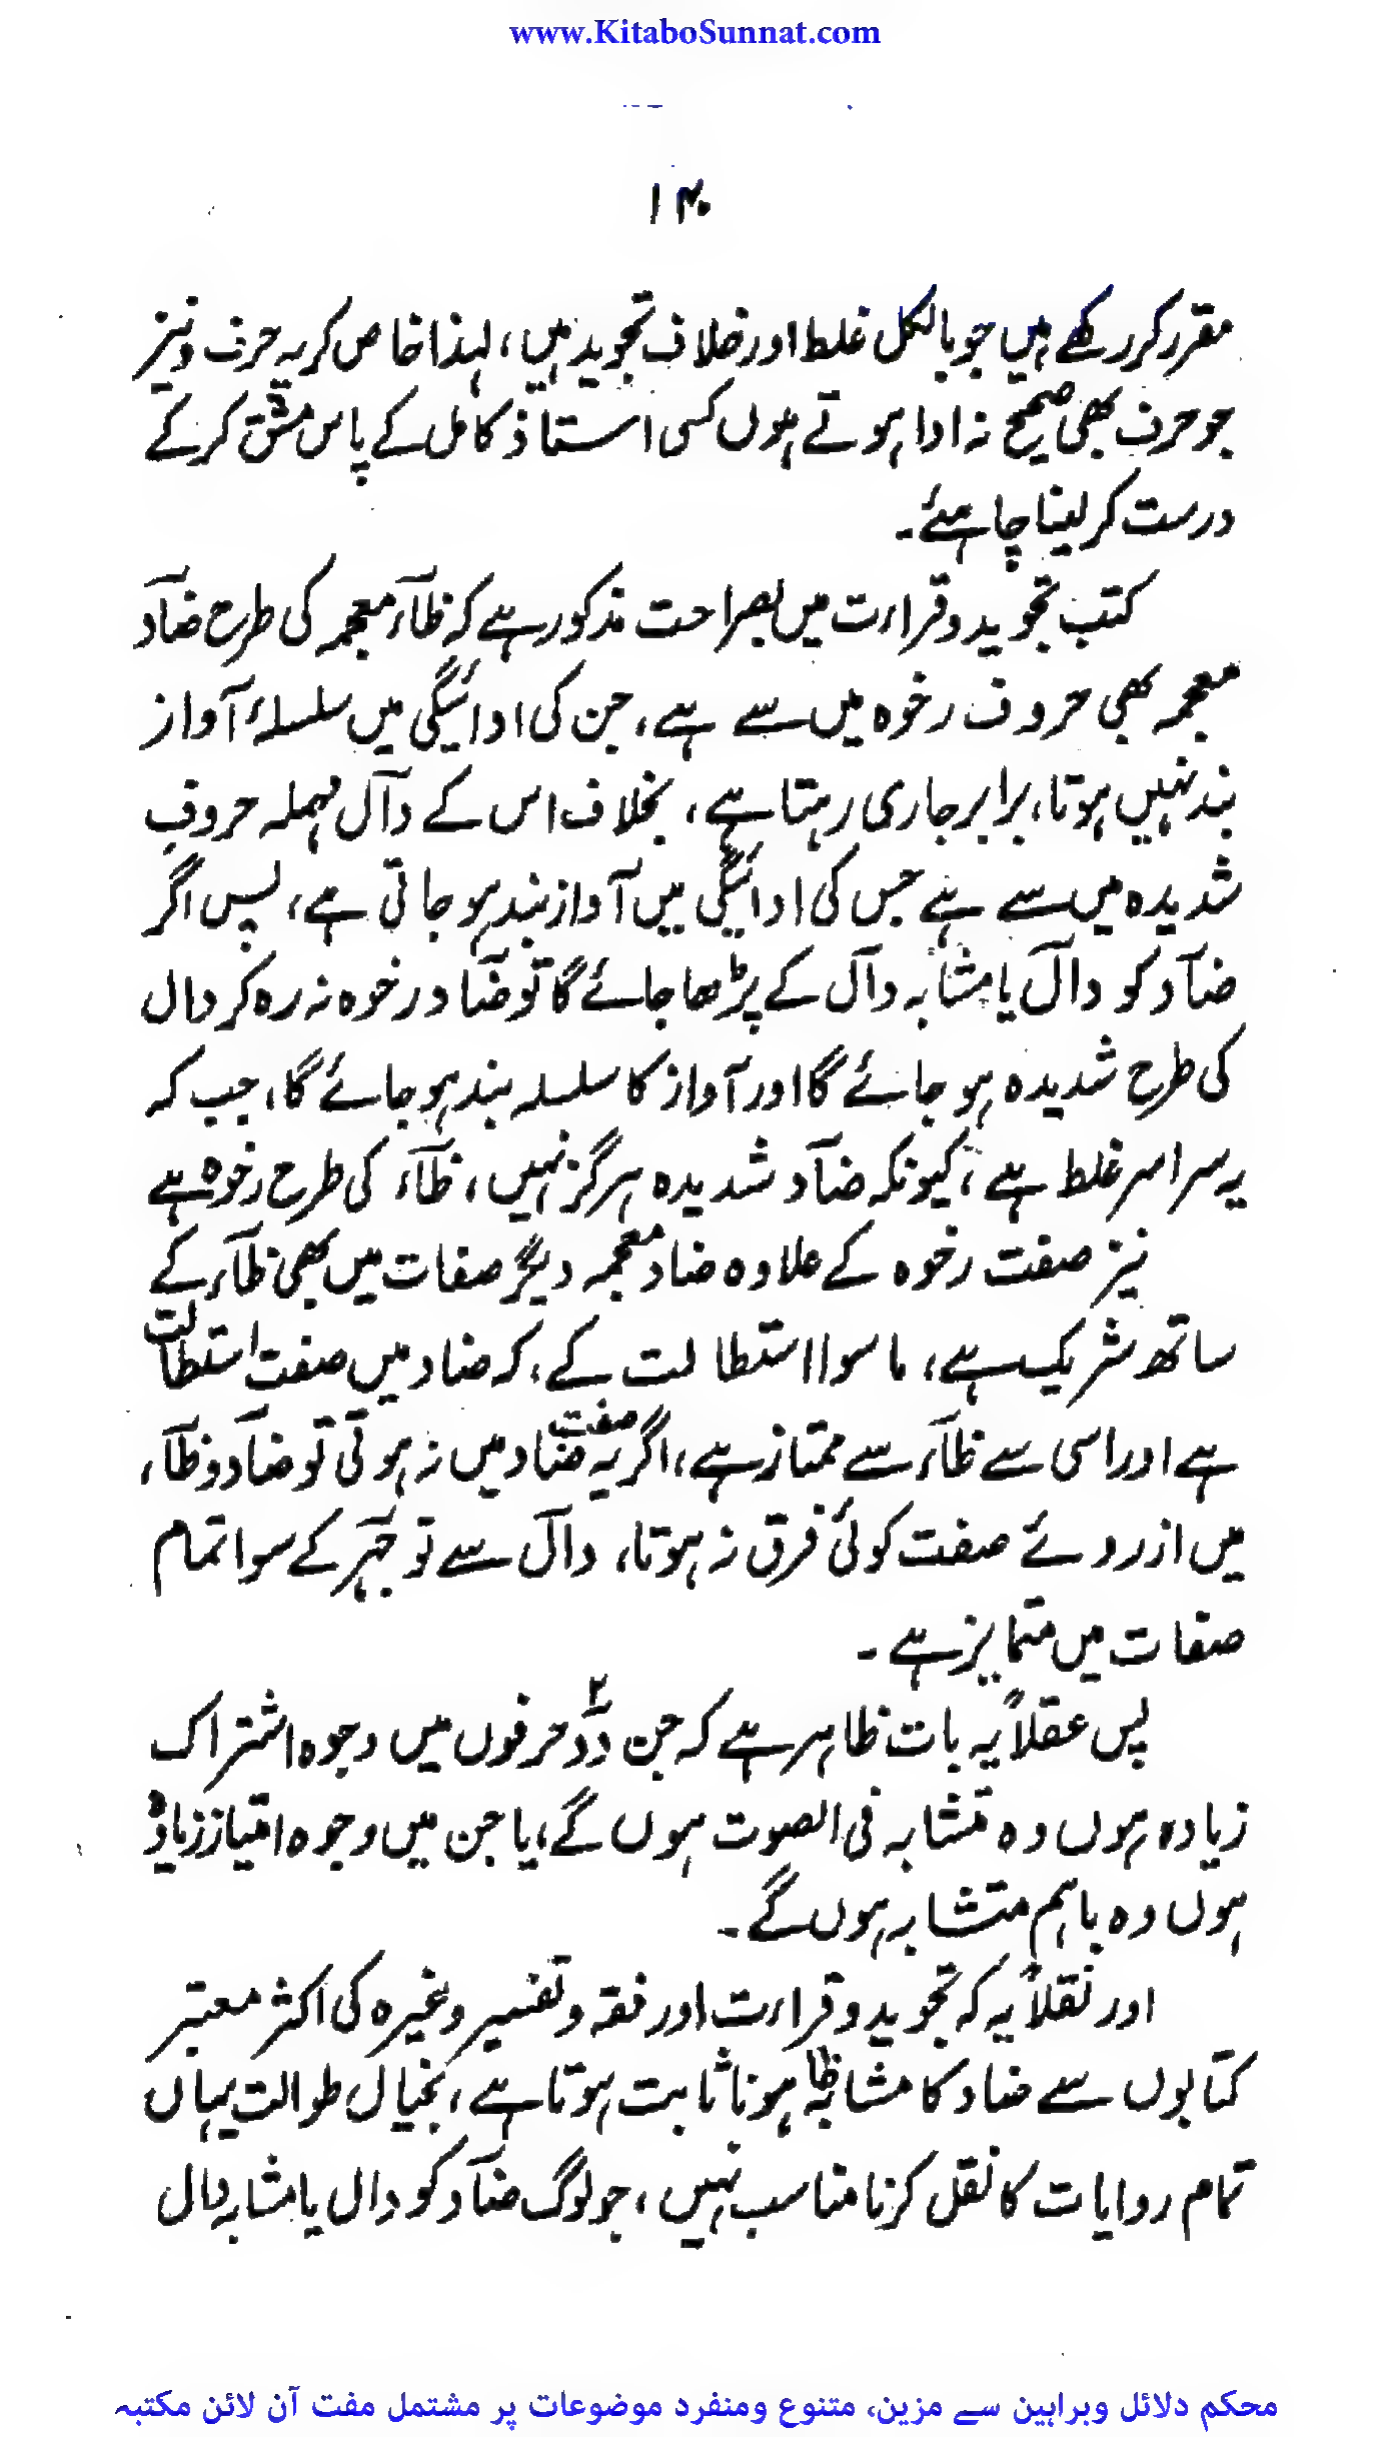 www.KitaboSunnat.com
۱۴۰
مقرر کر رکھے ہیں جو بالکل غلط اور خلاف تجوید ہیں، لہٰذا خاص کر یہ حرف ونیز
جو حرف بھی صحیح نہ ادا ہوتے ہوں کسی استاذ کامل کے پاس مشق کر کے
درست کر لینا چاہئے۔
کتب تجوید وقراءت میں بصراحت مذکور ہے کہ ظآء معجمہ کی طرح ضآد
معجمہ بھی حروف رخوہ میں سے ہے، جن کی ادائیگی میں سلسلۂ آواز
بند نہیں ہوتا، برابر جاری رہتا ہے، بخلاف اس کے دآل مہملہ حروفِ
شدیدہ میں سے ہے جس کی ادائیگی میں آواز بند ہو جاتی ہے، پس اگر
ضآد کو دآل یا مشابہ دآل کے پڑھا جائے گا تو ضآد رخوہ نہ رہ کر دال
کی طرح شدیدہ ہو جائے گا اور آواز کا سلسلہ بند ہو جائے گا، جب کہ
یہ سراسر غلط ہے، کیونکہ ضآد شدیدہ ہرگز نہیں، ظآء کی طرح رخوہ ہے
نیز صفت رخوہ کے علاوہ ضاد معجمہ دیگر صفات میں بھی ظآء کے
ساتھ شریک ہے، ماسوا استطالت کے، کہ ضاد میں صفت استطالت
ہے اور اسی سے ظآء سے ممتاز ہے، اگر یہ صفت ضاد میں نہ ہوتی تو ضآد وظآء
میں ازروئے صفت کوئی فرق نہ ہوتا، دآل سے تو جہر کے سوا تمام
صفات میں متمایز ہے۔
پس عقلاً یہ بات ظاہر ہے کہ جن دو۲ حرفوں میں وجوہ اشتراک
زیادہ ہوں وہ متشابہ فی الصوت ہوں گے، یا جن میں وجوہ امتیاز زیادہ
ہوں وہ باہم متشابہ ہوں گے۔
اور نقلاً یہ کہ تجوید وقراءت اور فقہ وتفسیر وغیرہ کی اکثر معتبر
کتابوں سے ضاد کا مشابہ ظا ہونا ثابت ہوتا ہے، بخیال طوالت یہاں
تمام روایات کا نقل کرنا مناسب نہیں، جو لوگ ضآد کو دال یا مشابہ دال
محکم دلائل وبراہین سے مزین، متنوع ومنفرد موضوعات پر مشتمل مفت آن لائن مکتبہ